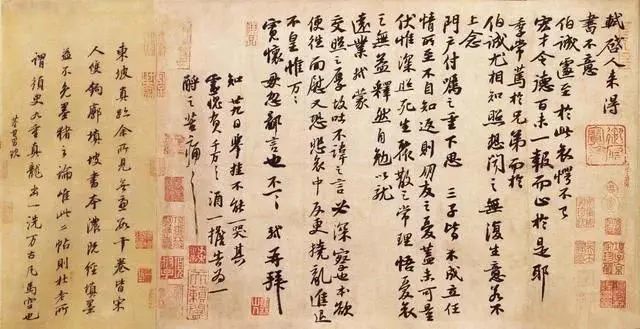 軾啓人来得
書不意
伯誠遽至於此哀愕不已
宏才令德百未一報而止於是耶
季常篤於兄弟而於
伯誠尤相知照想聞之無復生意若不
上念
門户付囑之重下思三子皆不成立任
情所至不自知返則朋友之憂蓋未可量
伏惟深照死生聚散之常理悟憂哀
之無益釋然自勉以就
遠業軾蒙
交照之厚故吐不諱之言必深察也本欲
便往面慰又恐悲哀中反更撓亂進退
不皇惟万万
寬懷毋忽鄙言也不一一軾再拜
知廿九日舉挂不能一哭其
靈愧負千万千万酒一擔告為一
酹之苦痛苦痛
東坡真跡余所見無慮數十卷皆宋
人雙鈎廓填坡書本濃既經填墨
蓋不免墨豬之論惟此二帖則杜老所
謂須臾九重真龍出一洗万古凡馬空也
董其昌跋